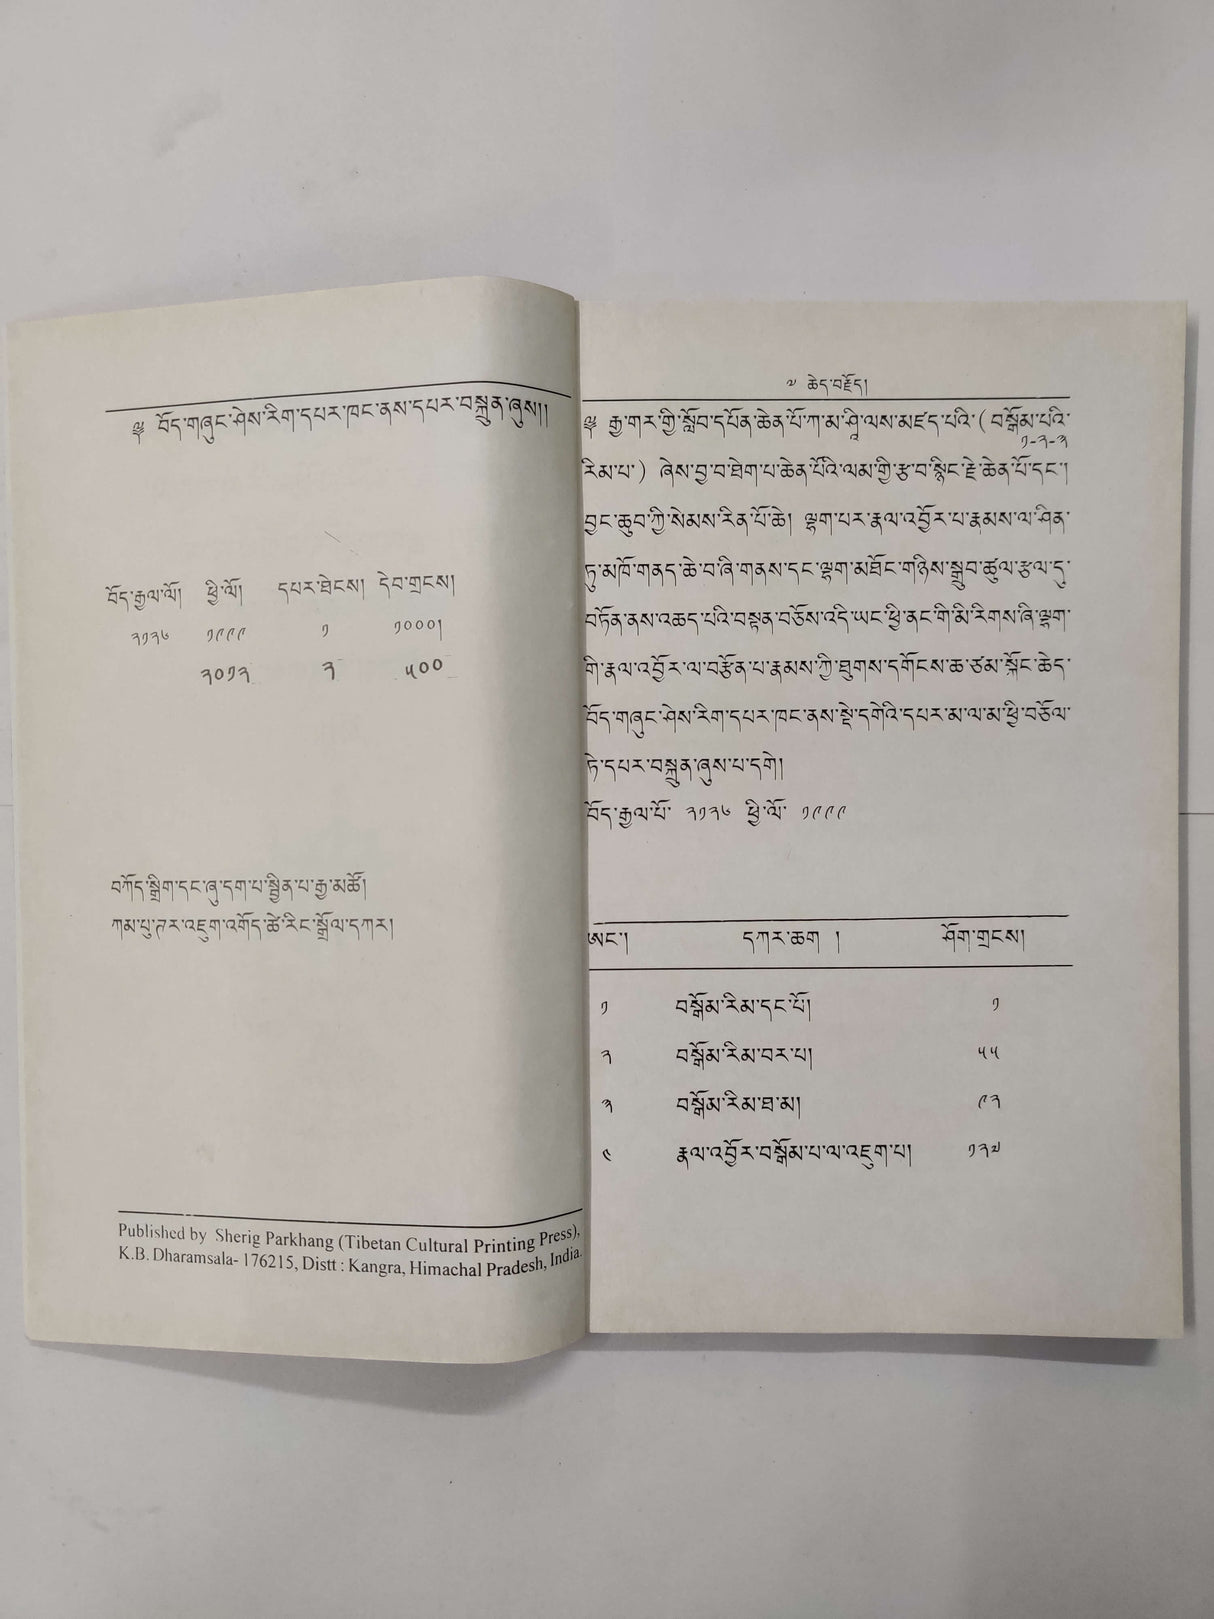 ༄༅ བོད་གཞུང་ཤེས་རིག་དཔར་ཁང་ནས་དཔར་བསྐྲུན་ཞུས།།
བོད་རྒྱལ་ལོ། ཕྱི་ལོ། དཔར་ཐེངས། དེབ་གྲངས།
༢༡༢༦ ༡༩༩༩ ༡ ༡༠༠༠།
༢༠༡༢ ༢ ༥༠༠
བཀོད་སྒྲིག་དང་ཞུ་དག་པ་སྦྱིན་པ་རྒྱ་མཚོ།
ཀམ་པུ་ཊར་འཇུག་འགོད་ཚེ་རིང་སྒྲོལ་དཀར།
Published by Sherig Parkhang (Tibetan Cultural Printing Press),
K.B. Dharamsala- 176215, Distt : Kangra, Himachal Pradesh, India.
༧ ཆེད་བརྗོད།
༄༅ རྒྱ་གར་གྱི་སློབ་དཔོན་ཆེན་པོ་ཀ་མ་ཤཱི་ལས་མཛད་པའི་ ( བསྒོམ་པའི་
༡-༢-༣
རིམ་པ་ ) ཞེས་བྱ་བ་ཐེག་པ་ཆེན་པོའི་ལམ་གྱི་རྩ་བ་སྙིང་རྗེ་ཆེན་པོ་དང་།
བྱང་ཆུབ་ཀྱི་སེམས་རིན་པོ་ཆེ། ལྷག་པར་རྣལ་འབྱོར་པ་རྣམས་ལ་ཤིན་
ཏུ་མཁོ་གནད་ཆེ་བ་ཞི་གནས་དང་ལྷག་མཐོང་གཉིས་སྒྲུབ་ཚུལ་རྩལ་དུ་
བཏོན་ནས་འཆད་པའི་བསྟན་བཅོས་འདི་ཡང་ཕྱི་ནང་གི་མི་རིགས་ཞི་ལྷག་
གི་རྣལ་འབྱོར་ལ་བརྩོན་པ་རྣམས་ཀྱི་ཐུགས་དགོངས་ཆ་ཙམ་སྐོང་ཆེད་
བོད་གཞུང་ཤེས་རིག་དཔར་ཁང་ནས་སྡེ་དགེའི་དཔར་མ་ལ་མ་ཕྱི་བཅོལ་
ཏེ་དཔར་བསྐྲུན་ཞུས་པ་དགེ།
བོད་རྒྱལ་པོ་ ༢༡༢༦ ཕྱི་ལོ་ ༡༩༩༩
ཨང་། དཀར་ཆག ། ཤོག་གྲངས།
༡ བསྒོམ་རིམ་དང་པོ། ༡
༢ བསྒོམ་རིམ་བར་པ། ༥༥
༣ བསྒོམ་རིམ་ཐ་མ། ༩༢
༤ རྣལ་འབྱོར་བསྒོམ་པ་ལ་འཇུག་པ། ༡༢༧